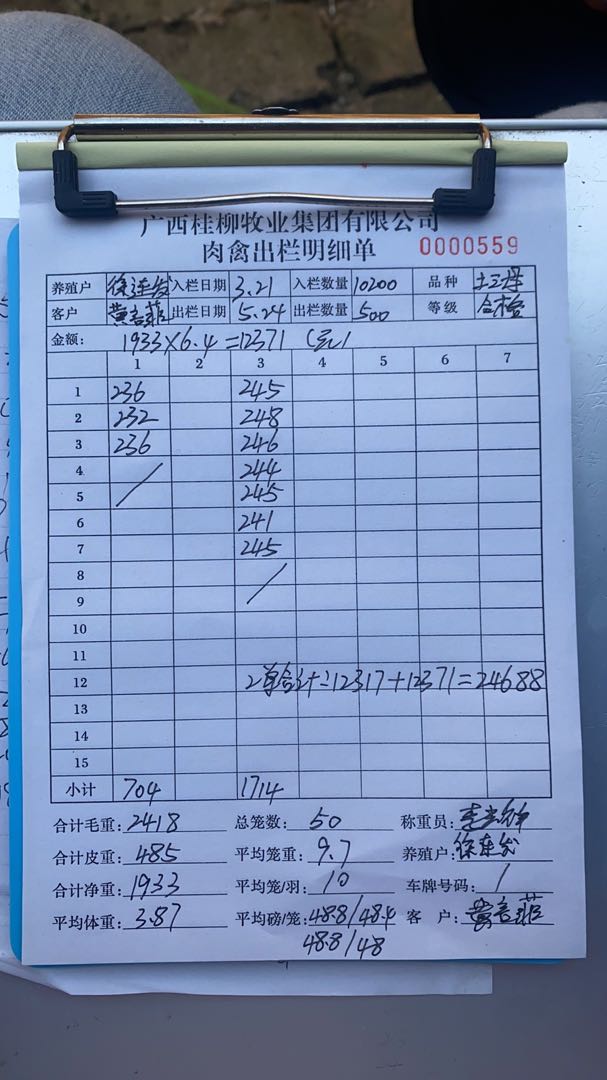 广西桂柳牧业集团有限公司
肉禽出栏明细单 0000559
养殖户 徐连发 入栏日期 3.21 入栏数量 10200 品种 土三母
客户 黄言菲 出栏日期 5.24 出栏数量 500 等级 合格
金额: 1933×6.4=12371 (元)
1 2 3 4 5 6 7
1 236 245
2 232 248
3 236 246
4 244
5 245
6 241
7 245
8
9
10
11
12 2单合计:12317+12371=24688
13
14
15
小计 704 1714
合计毛重: 2418 总笼数: 50 称重员:
合计皮重: 485 平均笼重: 9.7 养殖户: 徐连发
合计净重: 1933 平均笼/羽: 10 车牌号码: /
平均体重: 3.87 平均磅/笼: 48.8/48.4 客户: 黄言菲
48.8/48